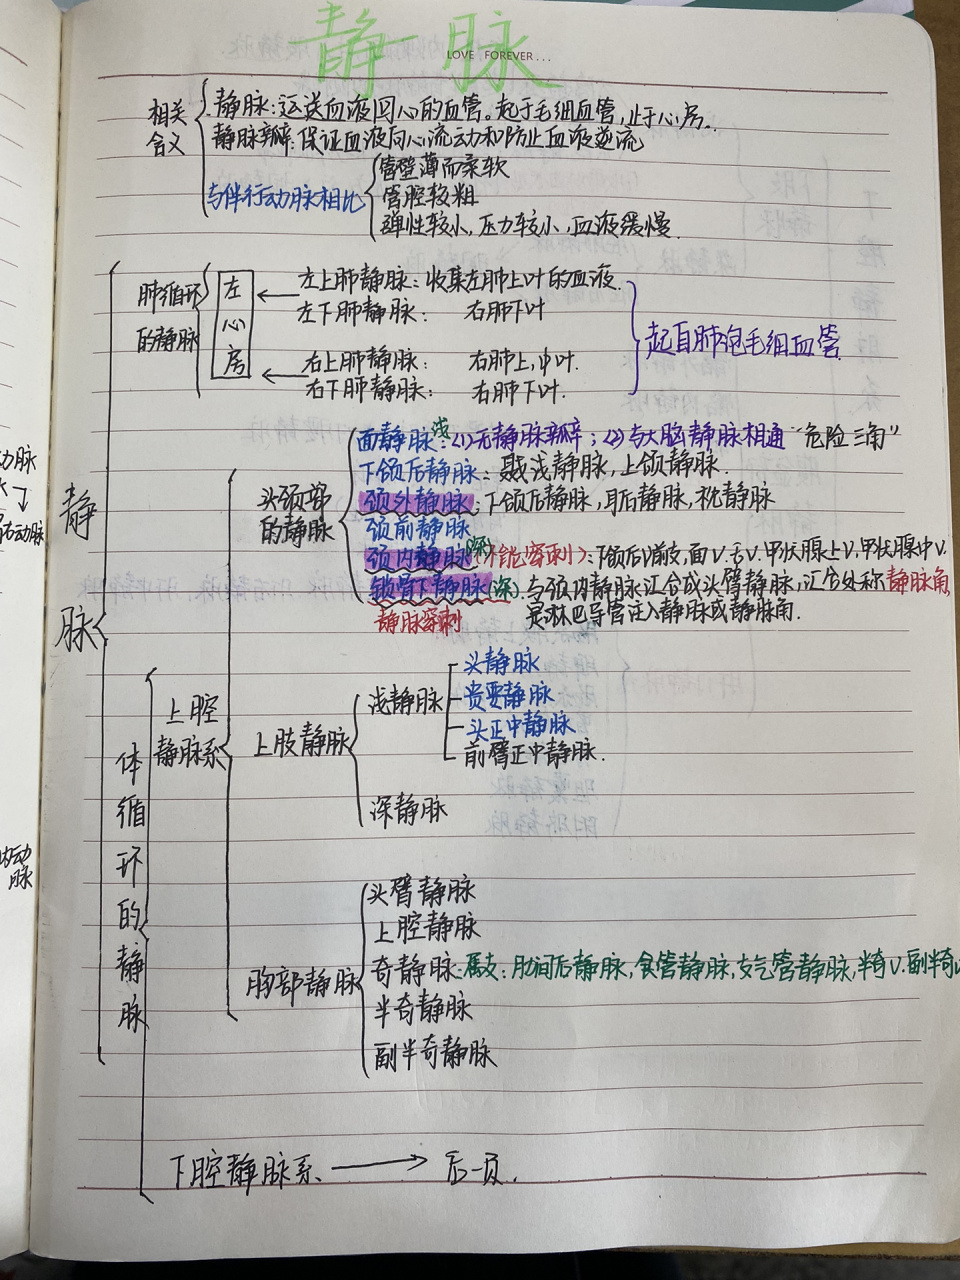 静脉
LOVE FOREVER...
相关含义
静脉：运送血液回心的血管。起于毛细血管，止于心房。
静脉瓣：保证血液向心流动和防止血液逆流
与伴行动脉相比
管壁薄而柔软
管腔较粗
弹性较小，压力较小，血液缓慢
静脉
肺循环的静脉
左心房
左上肺静脉：收集左肺上叶的血液.
左下肺静脉： 右肺下叶
右上肺静脉： 右肺上，中叶.
右下肺静脉： 右肺下叶.
起自肺泡毛细血管
体循环的静脉
上腔静脉系
头颈部的静脉
面静脉浅：(1)无静脉瓣；(2)与大脑静脉相通 "危险三角"
下颌后静脉：颞浅静脉，上颌静脉.
颈外静脉：下颌后静脉，耳后静脉，枕静脉
颈前静脉
颈内静脉(深)(不能穿刺)：下颌后V前支，面V.舌V.甲状腺上V，甲状腺中V.
锁骨下静脉(深)：与颈内静脉汇合成头臂静脉，汇合处称静脉角，
静脉穿刺
淋巴导管注入静脉或静脉角.
上肢静脉
浅静脉
头静脉
贵要静脉
头正中静脉
前臂正中静脉.
深静脉
胸部静脉
头臂静脉
上腔静脉
奇静脉：属支：肋间后静脉，食管静脉，支气管静脉，半奇V.副半奇
半奇静脉
副半奇静脉
下腔静脉系 → 后一页.
动脉
动脉
动脉